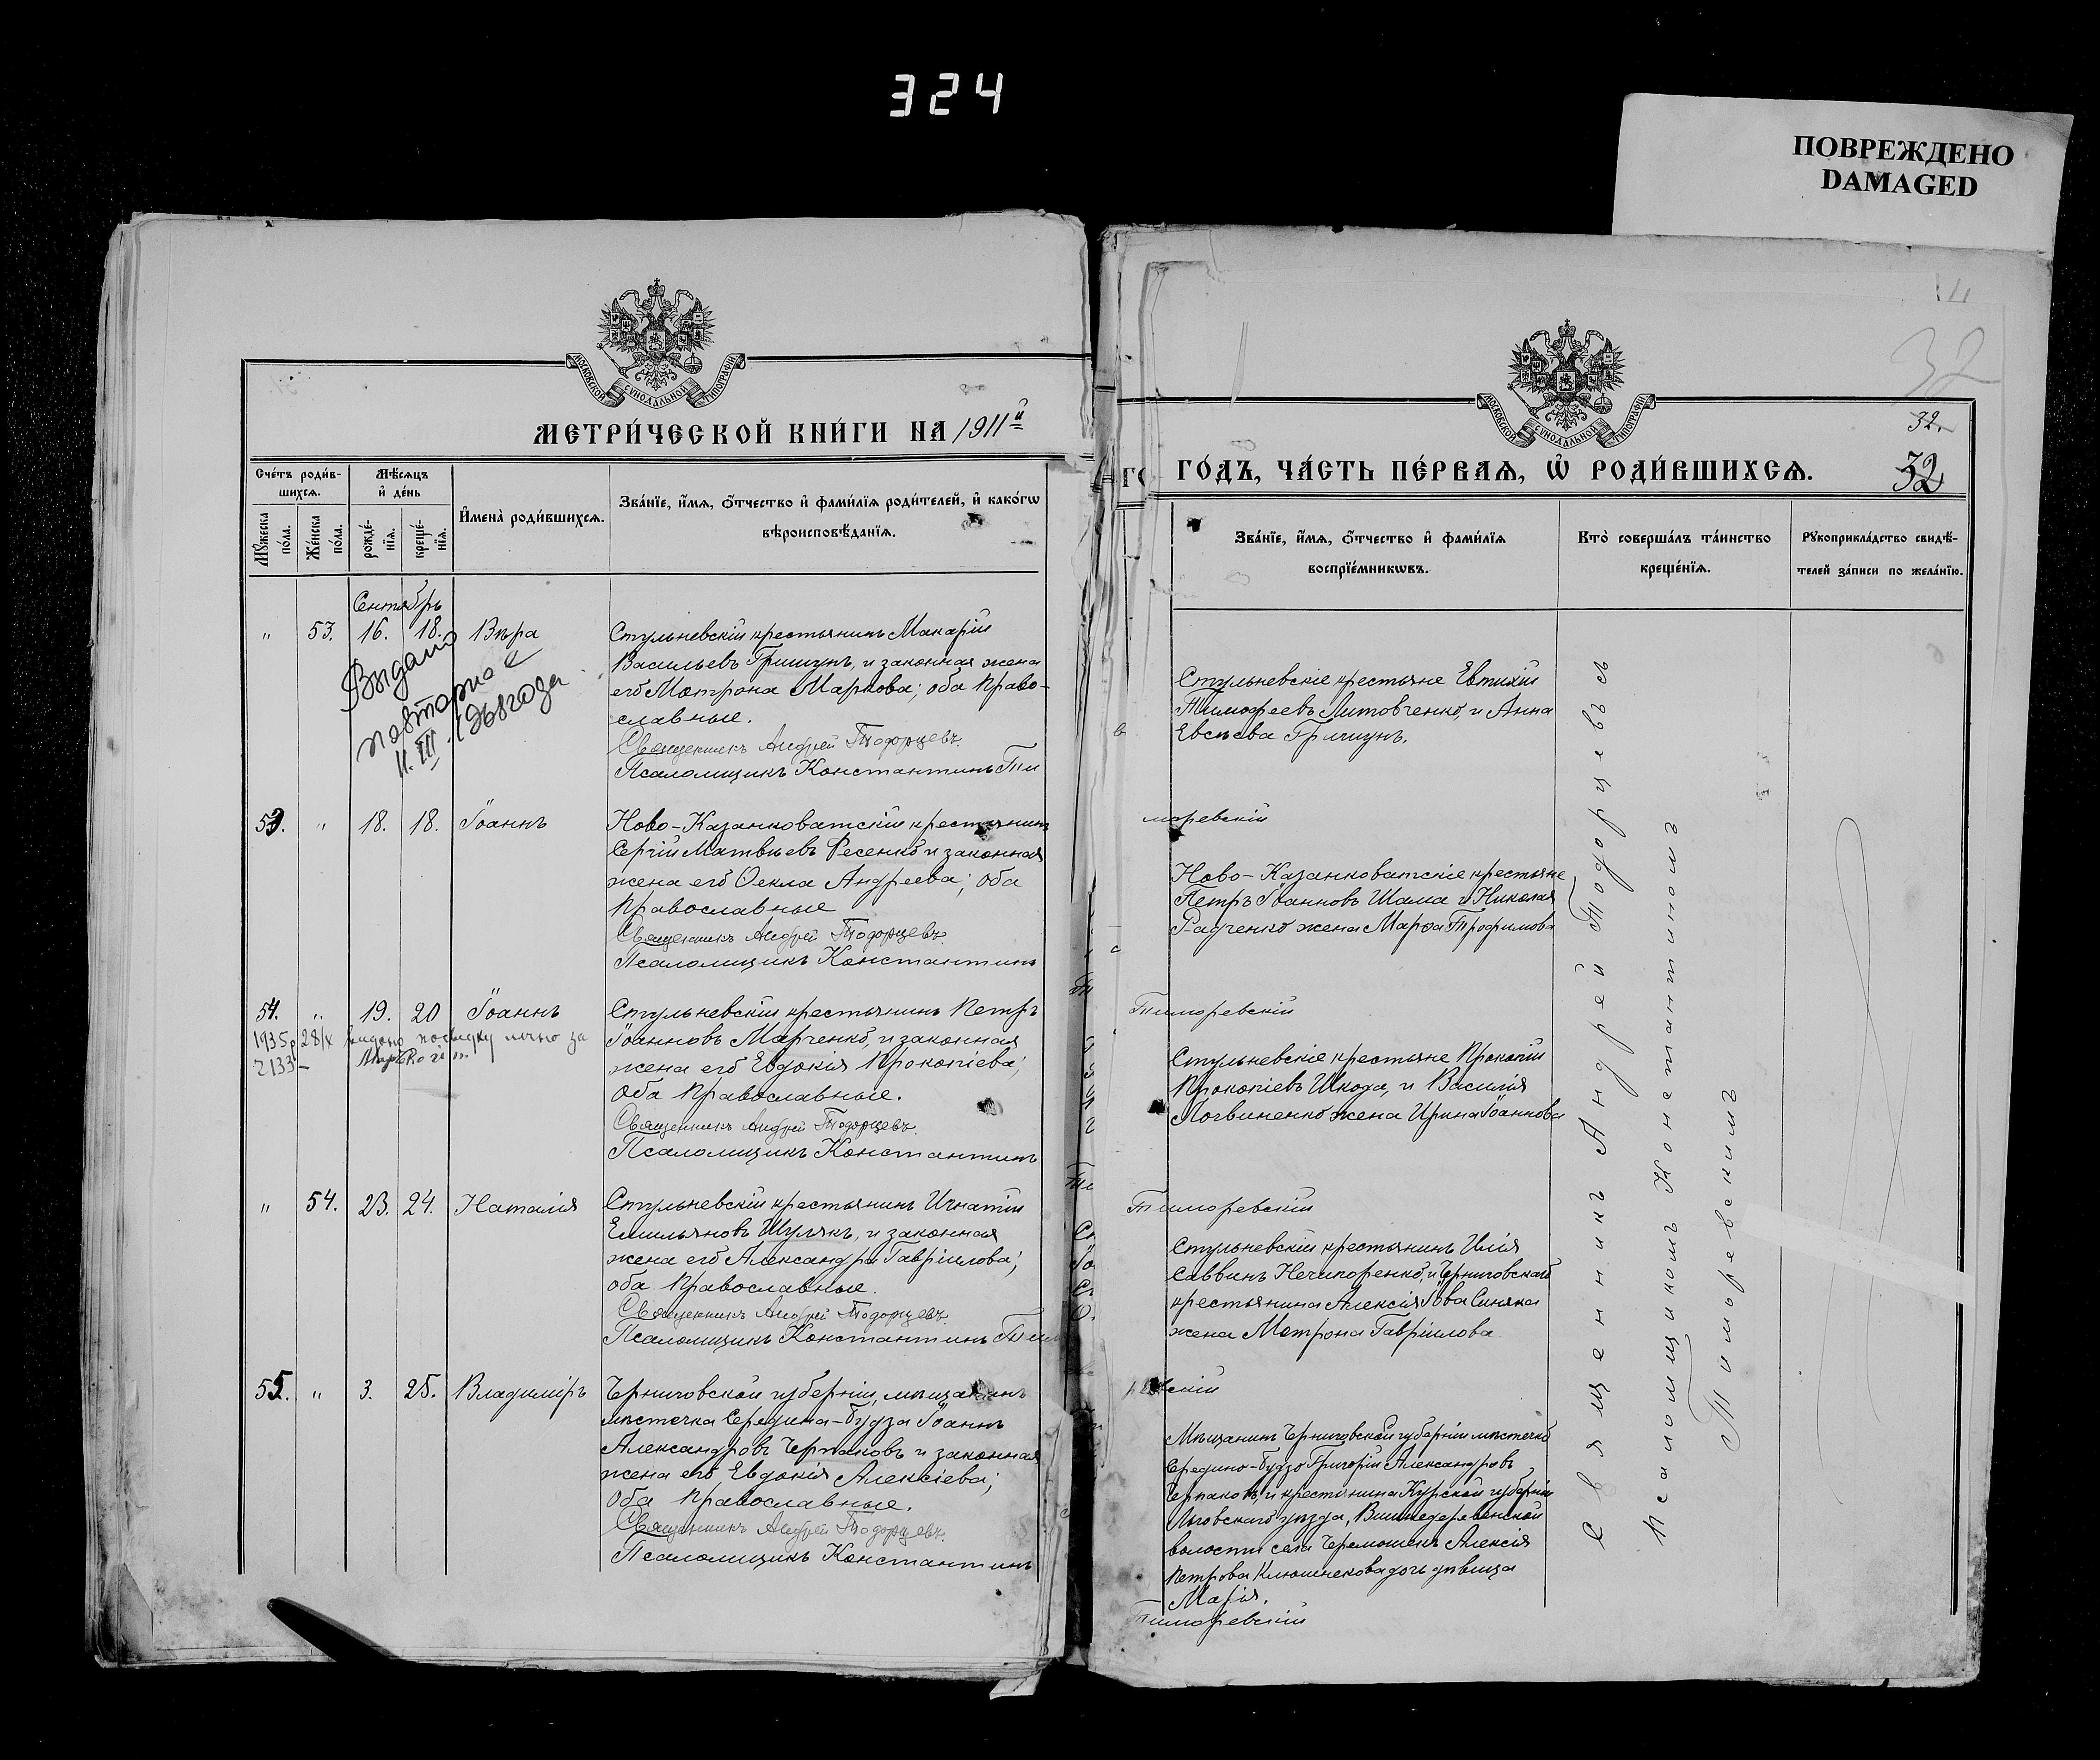 324
ПОВРЕЖДЕНО
DAMAGED
МОСКОВСКОЙ СѴНОДАЛЬНОЙ ТИПОГРАФІИ
МЕТРИ́ЧЕСКОЙ КНИ́ГИ НА 1911й
Сче́тъ роди́в-
шихсѧ.
Мꙋ́жеска по́ла.
Же́нска по́ла.
Мѣ́сѧцъ
и҆ де́нь
рожде́-
нїѧ.
креще́-
нїѧ.
И҆мена̀ роди́вшихсѧ.
Зва́нїе, и҆́мѧ, ѻ҆́тчество и҆ фами́лїѧ роди́телей, и҆ како́гѡ
вѣроисповѣ́данїѧ.
Сентябрь
" 53. 16. 18. Вѣра
Стульневскій крестьянинъ Макарій
Васильевъ Гришунъ, и законная жена
его Мотрона Маркова; оба Право-
славные.
Священникъ Андрей Тодорцевъ.
Псаломщикъ Константинъ Ти
Выдано
повторно
11.III.
53. " 18. 18. Іоаннъ
Ново-Казанковатскій крестьянинъ
Сергій Матвѣевъ Фесенко и законная
жена его Ѳекла Андреева; оба
Православные
Священникъ Андрей Тодорцевъ.
Псаломщикъ Константинъ
54. " 19. 20 Іоаннъ
1935р 28/X видано
2133
Стульневскій крестьянинъ Петръ
Іоанновъ Марченко, и законная
жена его Евдокія Прокопіева;
Оба Православные.
Священникъ Андрей Тодорцевъ.
Псаломщикъ Константинъ
" 54. 23. 24. Наталія
Стульневскій крестьянинъ Игнатій
Емильяновъ Шулякъ, и законная
жена его Александра Гавріилова;
оба Православные.
Священникъ Андрей Тодорцевъ.
Псаломщикъ Константинъ Тим
55. " 3. 25. Владиміръ
Черниговской губерніи, мѣщанинъ
мѣстечка Середина-Буда Іоаннъ
Александровъ Черпаковъ и законная
жена его Евдокія Алексіева;
Оба Православные.
Священникъ Андрей Тодорцевъ.
Псаломщикъ Константинъ
МОСКОВСКОЙ СѴНОДАЛЬНОЙ ТИПОГРАФІИ
32
32.
32
ГО́ДЪ, ЧА́СТЬ ПЕ́РВАѦ, Ѡ҆ РОДИ́ВШИХСѦ.
Зва́нїе, и҆́мѧ, ѻ҆́тчество и҆ фами́лїѧ
воспрїе́мникѡвъ.
Кто̀ соверша́лъ та́инство
креще́нїѧ.
Рꙋкоприкла́дство свидѣ́-
телей за́писи по жела́нїю.
Стульневскіе крестьяне Евтихій
Тимофеевъ Литовченко, и Анна
Евсѣева Гришунъ.
моревскій
Ново-Казанковатскіе крестьяне
Петръ Іоанновъ Шама и Николая
Радченко жена Марѳа Трофимова
Тиморевскій
Стульневскіе крестьяне Прокопій
Прокопіевъ Шкода, и Василія
Логвиненко жена Ирина Іоаннова
Тиморевскій
Стульневскій крестьянинъ Илія
Саввинъ Нечипоренко, и Черниговскаго
крестьянина Алексія Іова Синяка
жена Мотрона Гавріилова
ревскій
Мѣщанинъ Черниговской губерніи мѣстечко
Середино-Будо Григорій Александровъ
Черпаковъ, и крестьянина Курской губерніи
Льговскаго уѣзда,
волости села Черемошекъ Алексія
Петрова дочь дѣвица
Марія.
Тиморевскій
Священникъ Андрей Тодорцевъ съ
Псаломщикомъ Константиномъ
Тиморевскимъ